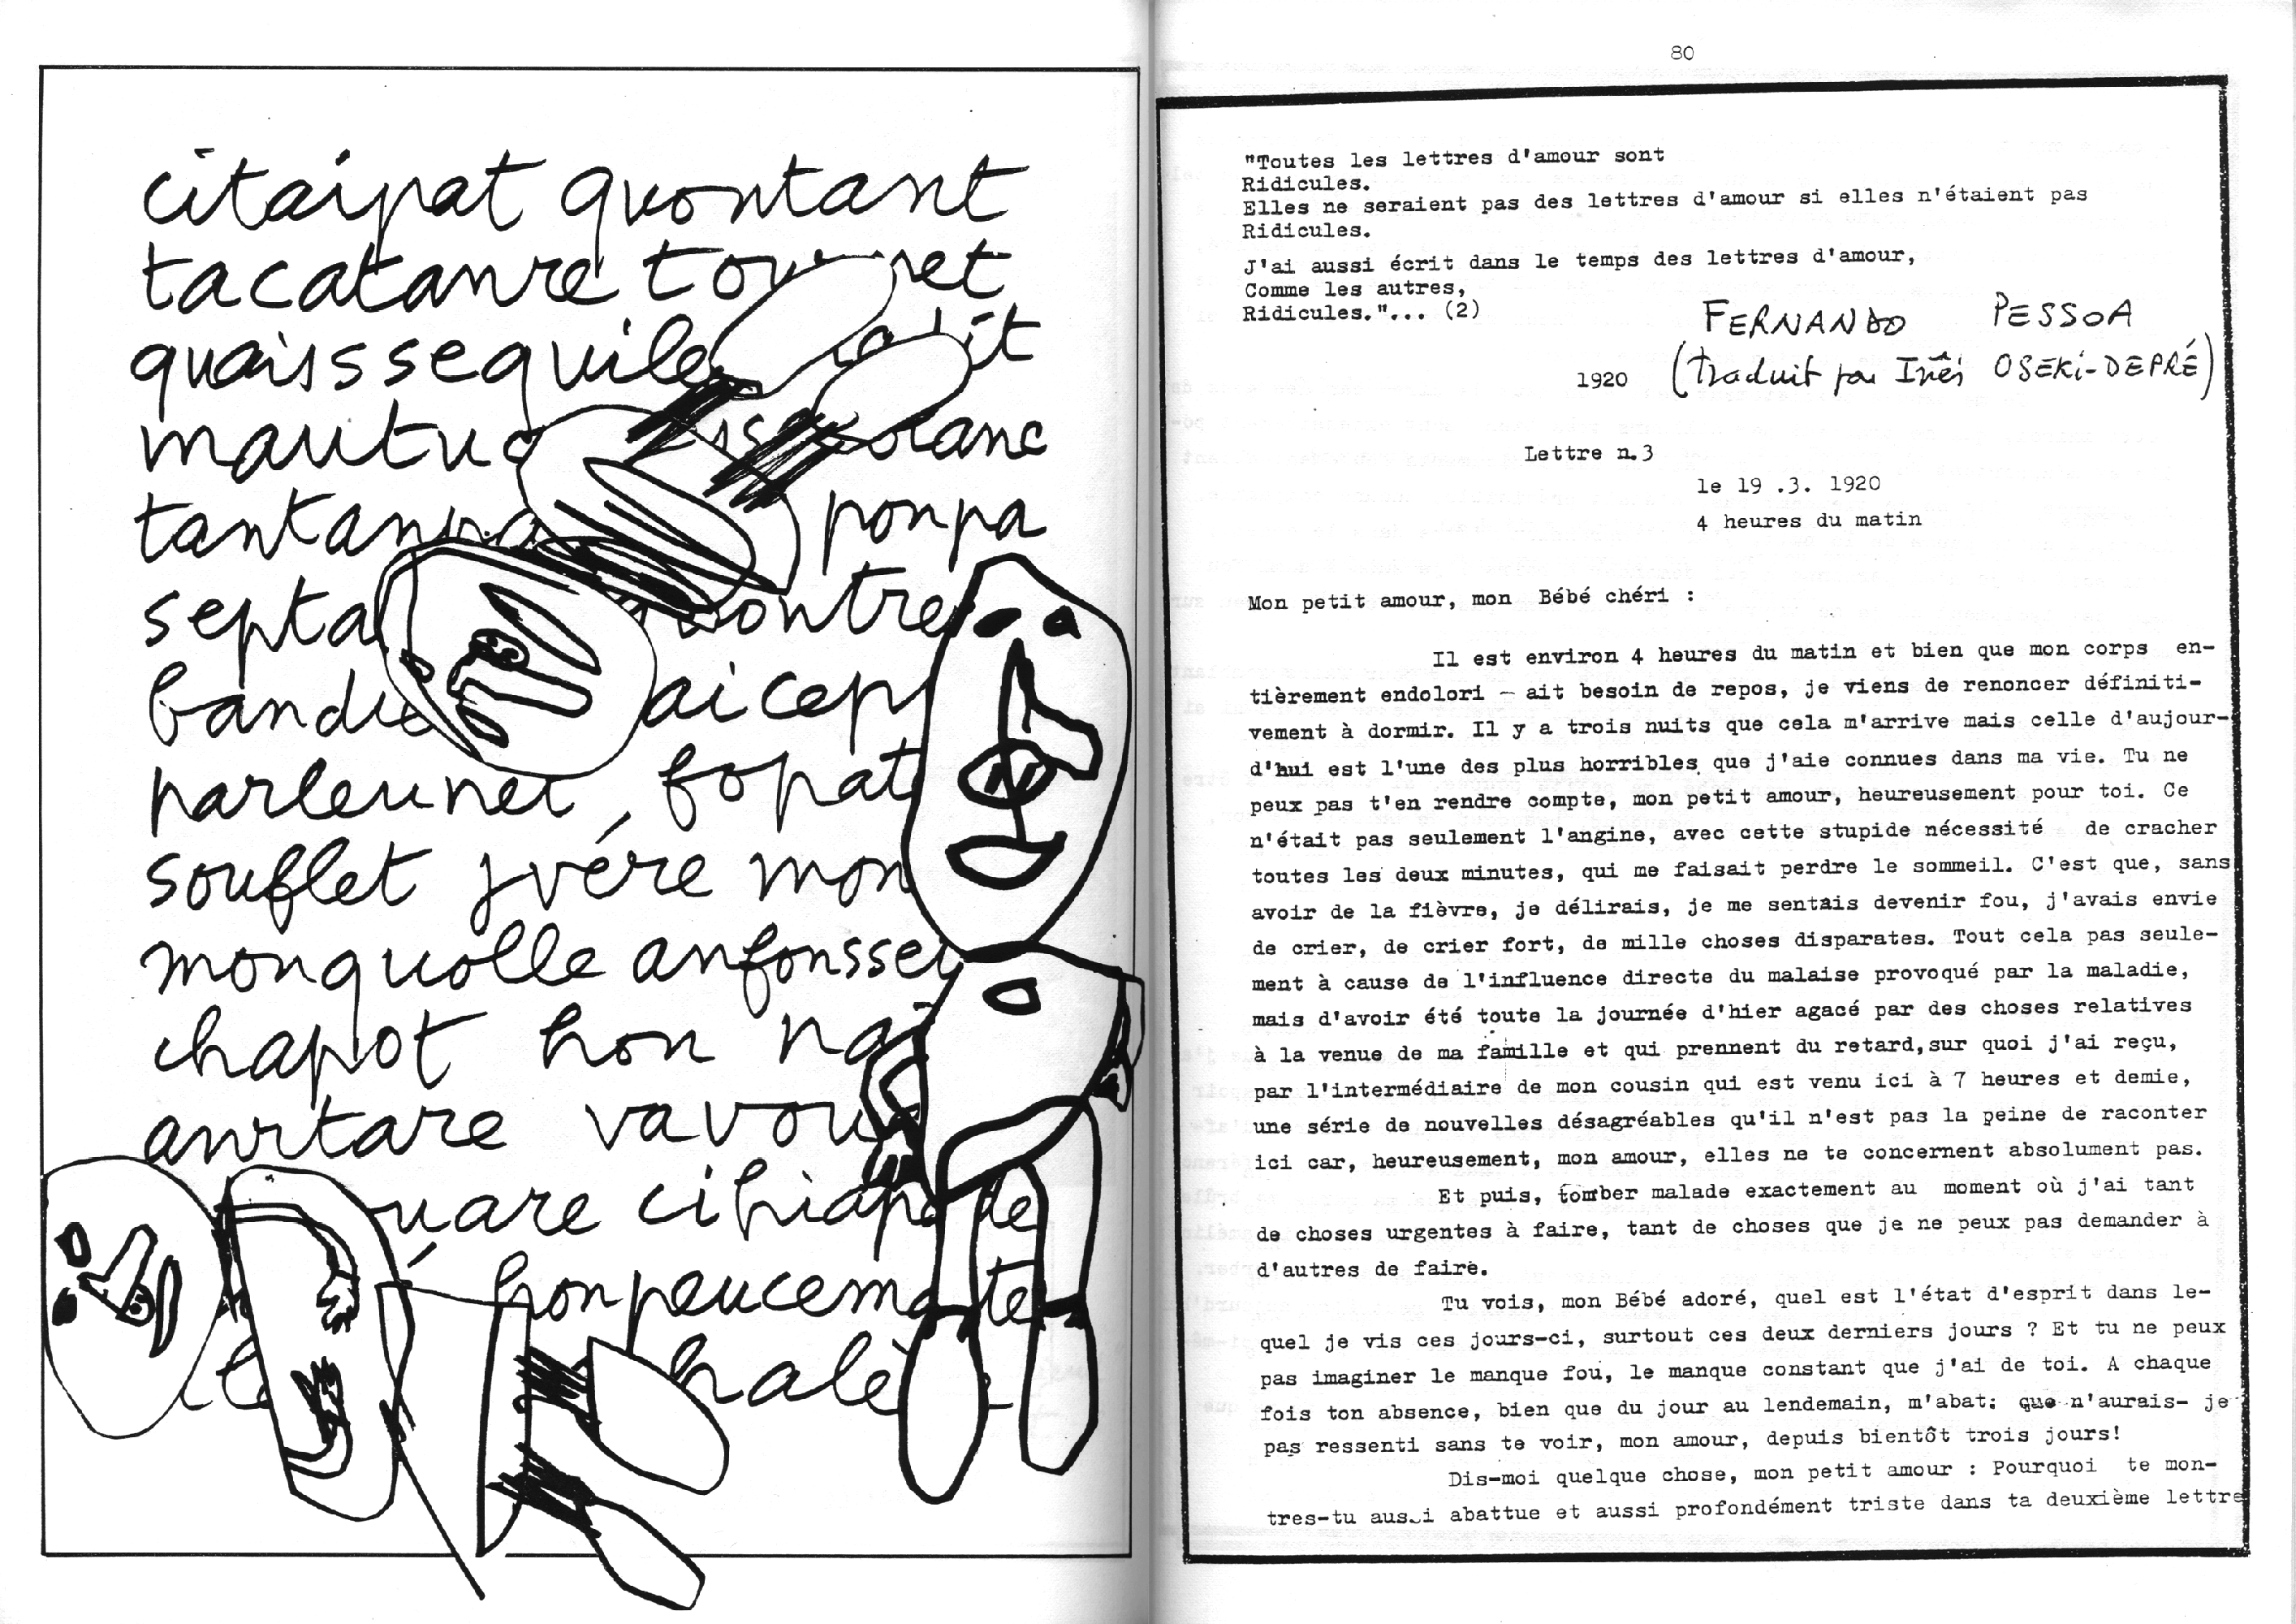 citaipat quontant
tacatanre tou et
quaisssequile it
mautu blanc
tantanna ponpa
septa montre
bandie aicep
parleunet, fopat
souflet jvére mon
monquolle anfonssei
chapot hon na
anrtare vavou
uare cihiapade
honpeucem te
halè
80
"Toutes les lettres d'amour sont
Ridicules.
Elles ne seraient pas des lettres d'amour si elles n'étaient pas
Ridicules.
J'ai aussi écrit dans le temps des lettres d'amour,
Comme les autres,
Ridicules."... (2)
FERNANDO PESSOA
1920 (traduit par Inês OSEKI-DEPRÉ)
Lettre n.3
le 19 .3. 1920
4 heures du matin
Mon petit amour, mon Bébé chéri :
Il est environ 4 heures du matin et bien que mon corps en-
tièrement endolori - ait besoin de repos, je viens de renoncer définiti-
vement à dormir. Il y a trois nuits que cela m'arrive mais celle d'aujour-
d'hui est l'une des plus horribles que j'aie connues dans ma vie. Tu ne
peux pas t'en rendre compte, mon petit amour, heureusement pour toi. Ce
n'était pas seulement l'angine, avec cette stupide nécessité de cracher
toutes les deux minutes, qui me faisait perdre le sommeil. C'est que, sans
avoir de la fièvre, je délirais, je me sentais devenir fou, j'avais envie
de crier, de crier fort, de mille choses disparates. Tout cela pas seule-
ment à cause de l'influence directe du malaise provoqué par la maladie,
mais d'avoir été toute la journée d'hier agacé par des choses relatives
à la venue de ma famille et qui prennent du retard,sur quoi j'ai reçu,
par l'intermédiaire de mon cousin qui est venu ici à 7 heures et demie,
une série de nouvelles désagréables qu'il n'est pas la peine de raconter
ici car, heureusement, mon amour, elles ne te concernent absolument pas.
Et puis, tomber malade exactement au moment où j'ai tant
de choses urgentes à faire, tant de choses que je ne peux pas demander à
d'autres de faire.
Tu vois, mon Bébé adoré, quel est l'état d'esprit dans le-
quel je vis ces jours-ci, surtout ces deux derniers jours ? Et tu ne peux
pas imaginer le manque fou, le manque constant que j'ai de toi. A chaque
fois ton absence, bien que du jour au lendemain, m'abat; que n'aurais- je
pas ressenti sans te voir, mon amour, depuis bientôt trois jours!
Dis-moi quelque chose, mon petit amour : Pourquoi te mon-
tres-tu aussi abattue et aussi profondément triste dans ta deuxième lettre